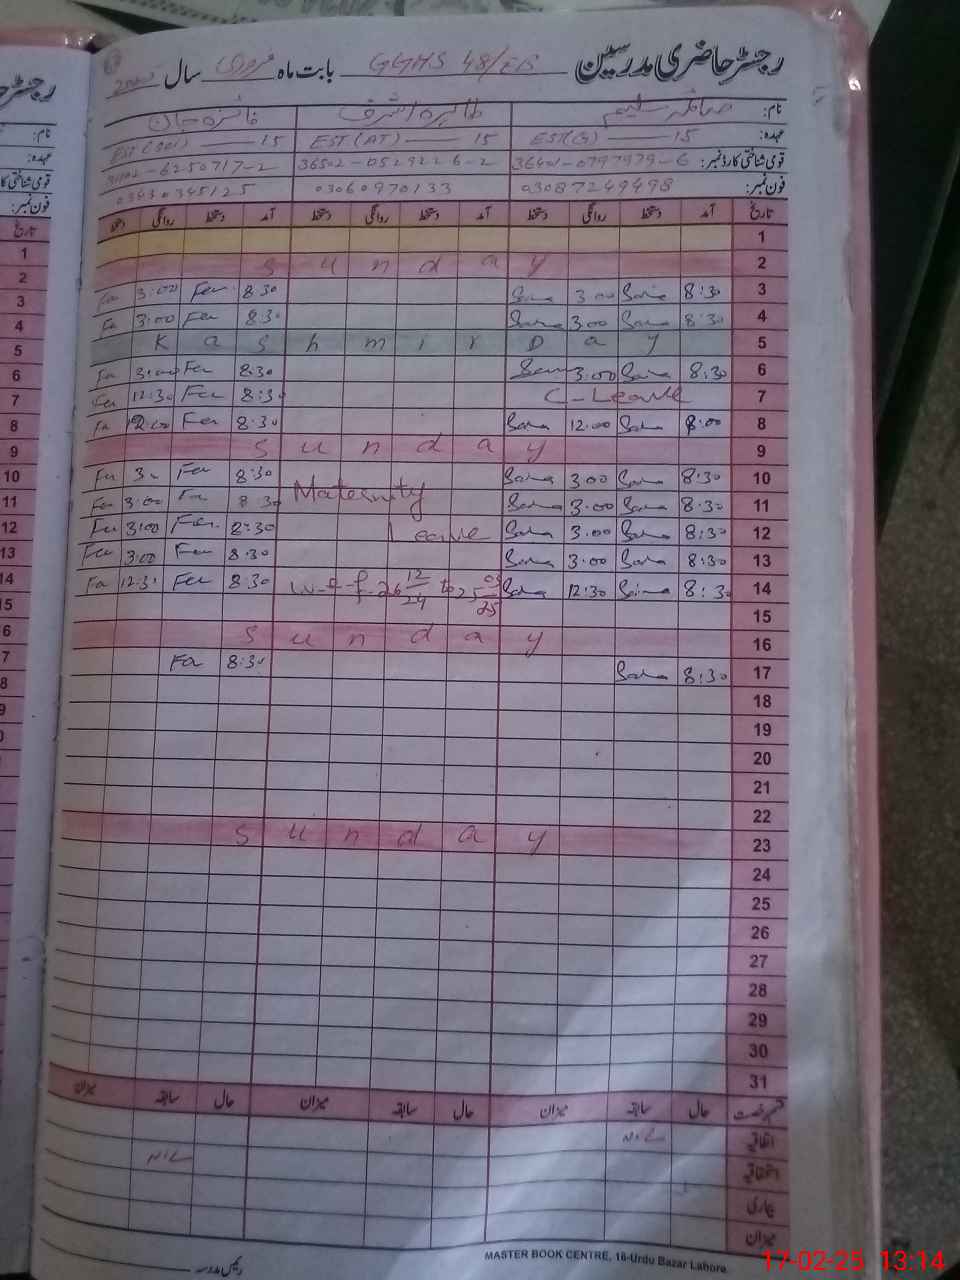 رجسٹر حاضری مدرسین GGHS 48/EB بابت ماہ فروری سال
نام: صائمہ سلیم طاہرہ اشرف فائزہ جان
عہدہ: EST(G) — 15 EST(AT) — 15 EST — 15
قومی شناختی کارڈ نمبر: 36401-0797979-6 36502-0529226-2 -6250717-2
فون نمبر: 03087249498 03060970133 03430345125
تاریخ آمد دستخط روانگی دستخط آمد دستخط روانگی دستخط آمد دستخط روانگی دستخط
1
2 Sunday
3 8:30 Saima 3:00 Saima 8:30 Fa 3:00 Fa
4 8:30 Saima 3:00 Saima 8:30 Fa 3:00 Fa
5 Kashmir Day
6 8:30 Saima 3:00 Saima 8:30 Fa 3:00 Fa
7 C-Leave 8:30 Fa 12:30 Fa
8 8:00 Saima 12:00 Saima 8:30 Fa 12:00 Fa
9 Sunday
10 8:30 Saima 3:00 Saima 8:30 Fa 3: Fa
11 8:30 Saima 3:00 Saima Maternity 8:30 Fa 3:00 Fa
12 8:30 Saima 3:00 Saima Leave 8:30 Fa 3:00 Fa
13 8:30 Saima 3:00 Saima 8:30 Fa 3:00 Fa
14 8:30 Saima 12:30 Saima w-e-f-26 12/24 to 25 03/25 8:30 Fa 12:3 Fa
15
16 Sunday
17 8:30 Saima 8:30 Fa
18
19
20
21
22
23 Sunday
24
25
26
27
28
29
30
31
قسم رخصت حال سابقہ میزان حال سابقہ میزان حال سابقہ میزان
اتفاقیہ NIL
استحقاقیہ NIL
بیماری
میزان
رئیس مدرسہ
MASTER BOOK CENTRE, 16-Urdu Bazar Lahore
17-02-25 13:14
رجسٹر حا
نام:
عہدہ:
قومی شناختی کا
فون نمبر:
تاریخ
1
2
3
4
5
6
7
8
9
10
11
12
13
14
15
6
7
8